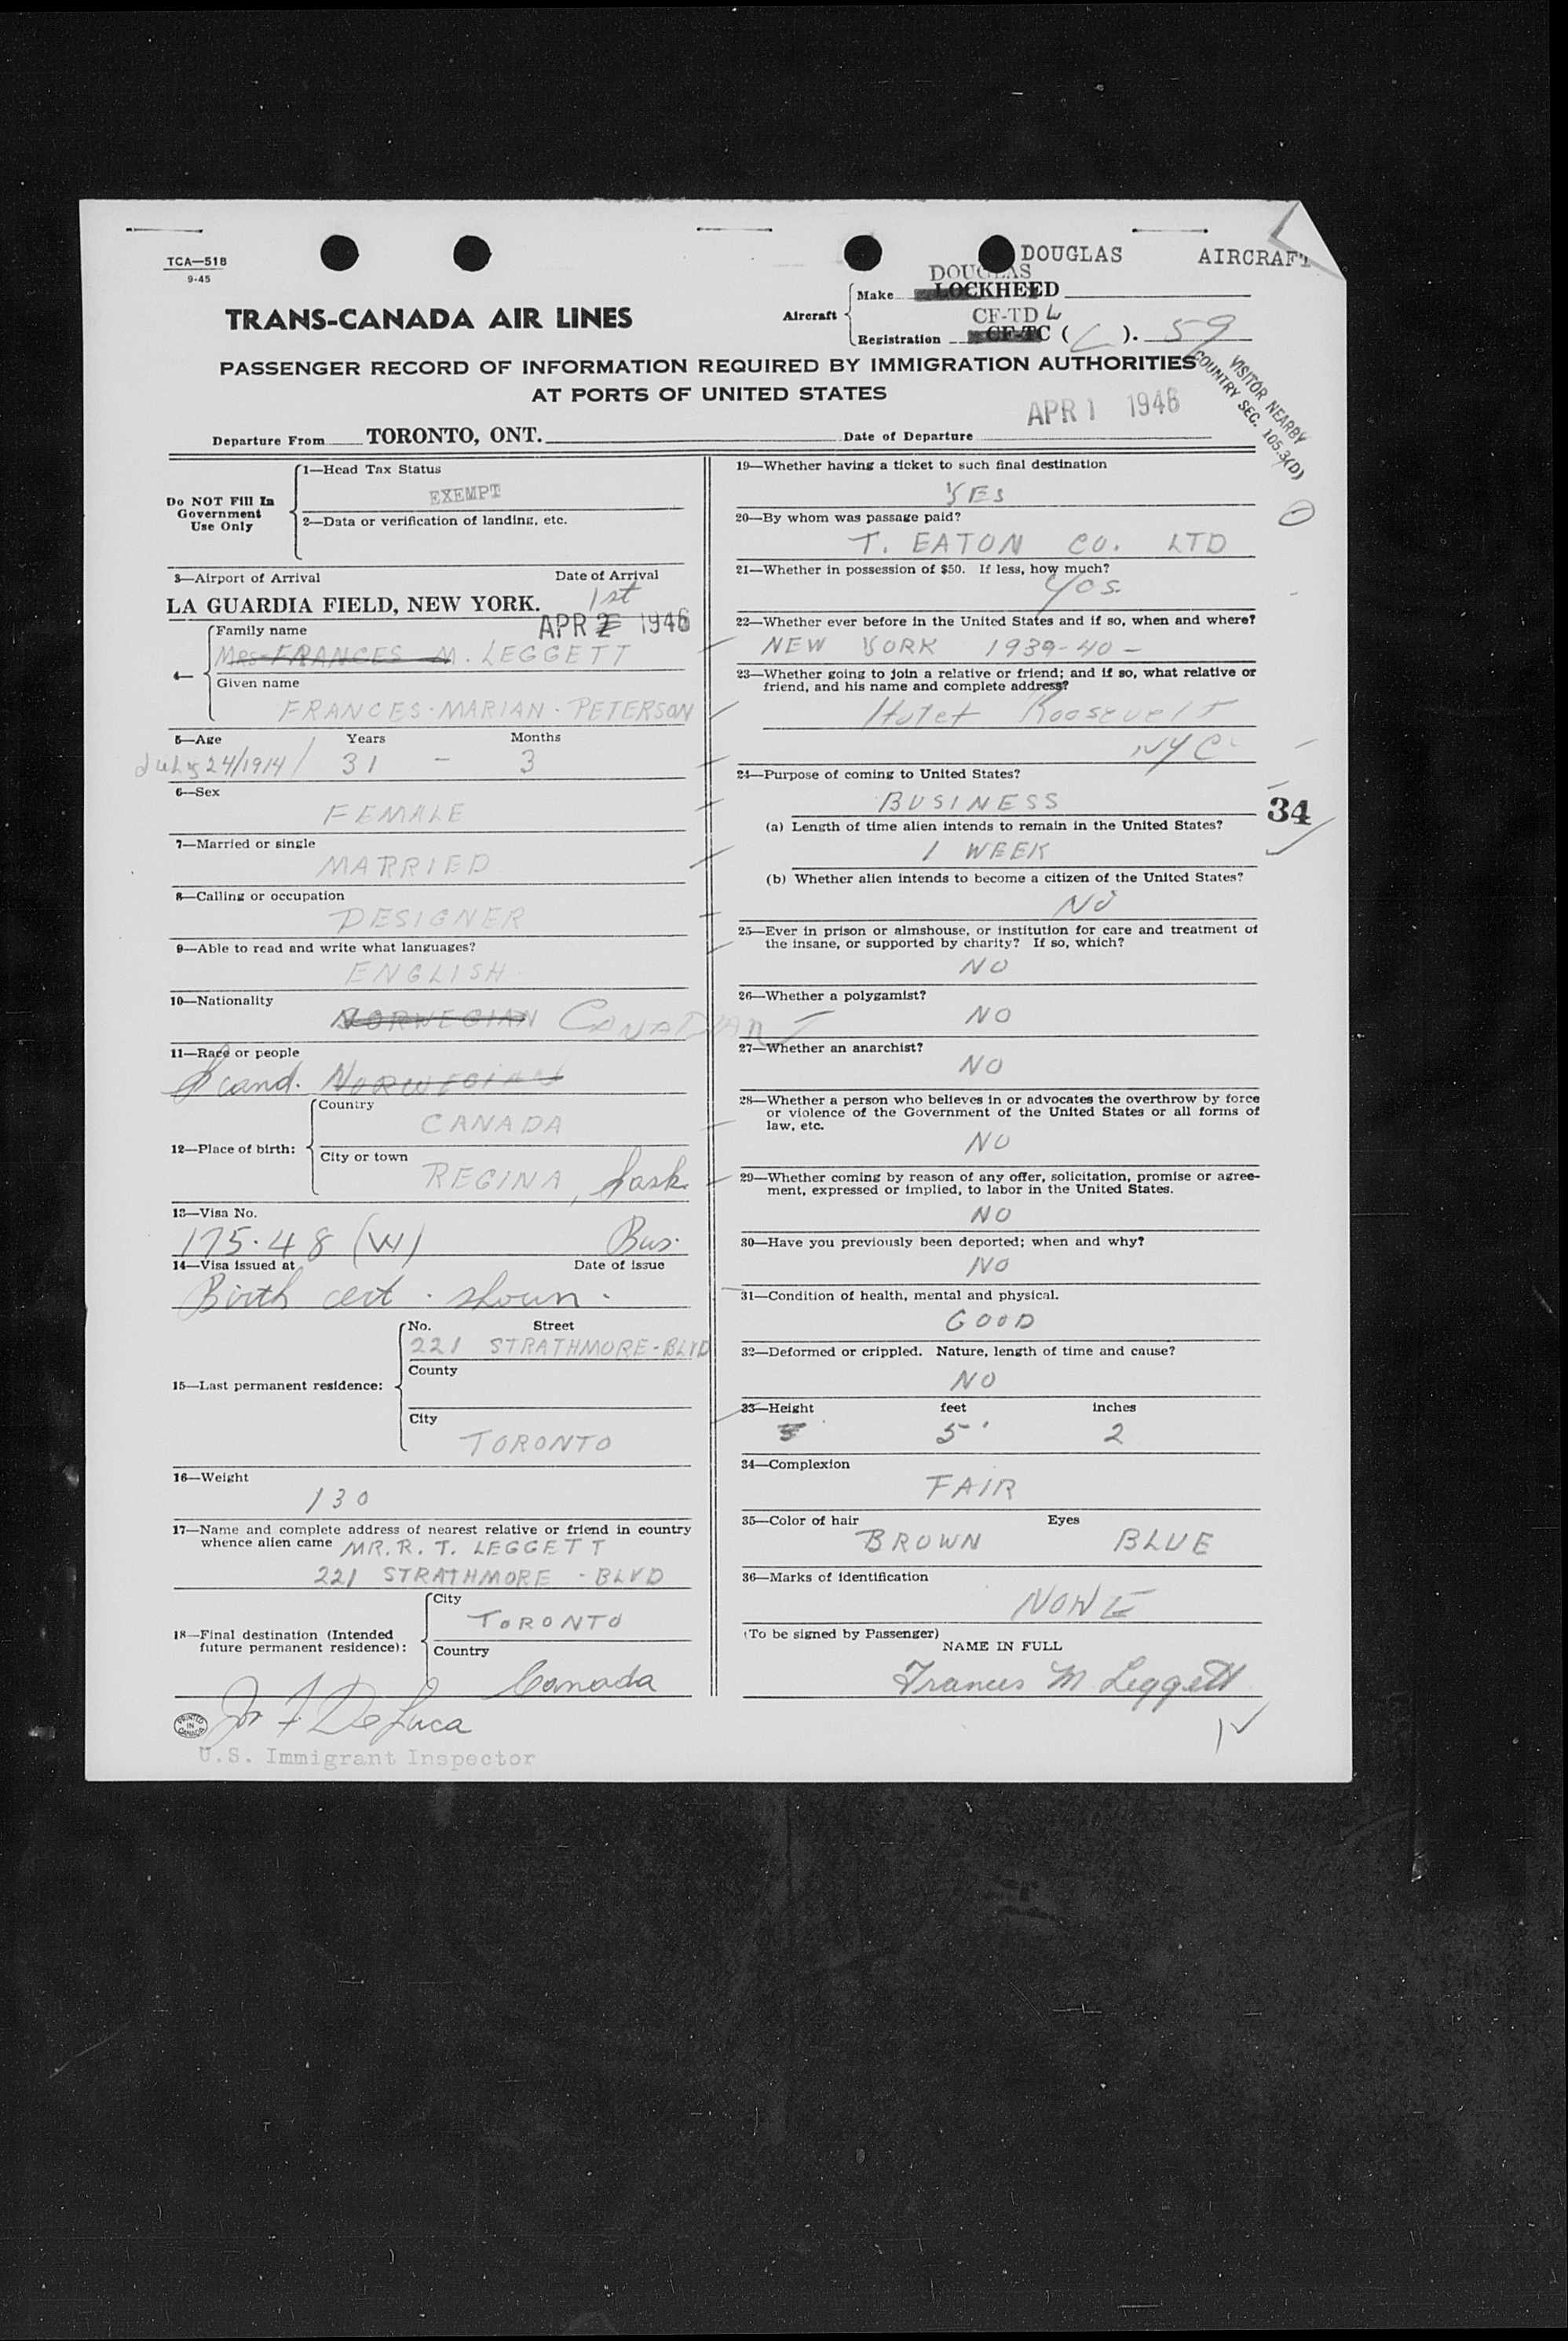 TCA—518
9-45
DOUGLAS AIRCRAFT
DOUGLAS
Make LOCKHEED
Aircraft
CF-TD L
Registration CF-TC ( L ). 59
TRANS-CANADA AIR LINES
PASSENGER RECORD OF INFORMATION REQUIRED BY IMMIGRATION AUTHORITIES
AT PORTS OF UNITED STATES
VISITOR NEARBY
COUNTRY SEC. 105.3(D)
APR 1 1946
Departure From TORONTO, ONT. Date of Departure
Do NOT Fill In
Government
Use Only
1—Head Tax Status
EXEMPT
2—Data or verification of landing, etc.
3—Airport of Arrival Date of Arrival
1st
LA GUARDIA FIELD, NEW YORK.
APR 2 1946
4—
Family name
MRS-FRANCES M. LEGGETT
Given name
FRANCES-MARIAN-PETERSON
5—Age Years Months
July 24/1914/ 31 - 3
6—Sex
FEMALE
7—Married or single
MARRIED
8—Calling or occupation
DESIGNER
9—Able to read and write what languages?
ENGLISH
10—Nationality
NORWEGIAN CANADIAN
11—Race or people
Scand. NORWEGIAN
12—Place of birth:
Country
CANADA
City or town
REGINA, Sask.
13—Visa No.
175.48 (W) Bus.
14—Visa issued at Date of issue
Birth cert. shown.
15—Last permanent residence:
No. Street
221 STRATHMORE-BLVD
County
City
TORONTO
16—Weight
130
17—Name and complete address of nearest relative or friend in country
whence alien came MR. R. T. LEGGETT
221 STRATHMORE - BLVD
18—Final destination (Intended
future permanent residence):
City
TORONTO
Country
Canada
PRINTED
IN
CANADA
De Luca
U.S. Immigrant Inspector
19—Whether having a ticket to such final destination
YES
20—By whom was passage paid?
T. EATON CO. LTD
21—Whether in possession of $50. If less, how much?
Yes
22—Whether ever before in the United States and if so, when and where?
NEW YORK 1939-40-
23—Whether going to join a relative or friend; and if so, what relative or
friend, and his name and complete address?
Hotel Roosevelt
NYC
24—Purpose of coming to United States?
BUSINESS
34
(a) Length of time alien intends to remain in the United States?
1 WEEK
(b) Whether alien intends to become a citizen of the United States?
NO
25—Ever in prison or almshouse, or institution for care and treatment of
the insane, or supported by charity? If so, which?
NO
26—Whether a polygamist?
NO
27—Whether an anarchist?
NO
28—Whether a person who believes in or advocates the overthrow by force
or violence of the Government of the United States or all forms of
law, etc.
NO
29—Whether coming by reason of any offer, solicitation, promise or agree-
ment, expressed or implied, to labor in the United States.
NO
30—Have you previously been deported; when and why?
NO
31—Condition of health, mental and physical.
GOOD
32—Deformed or crippled. Nature, length of time and cause?
NO
33—Height feet inches
5' 2
34—Complexion
FAIR
35—Color of hair Eyes
BROWN BLUE
36—Marks of identification
NONE
(To be signed by Passenger)
NAME IN FULL
Frances M Leggett